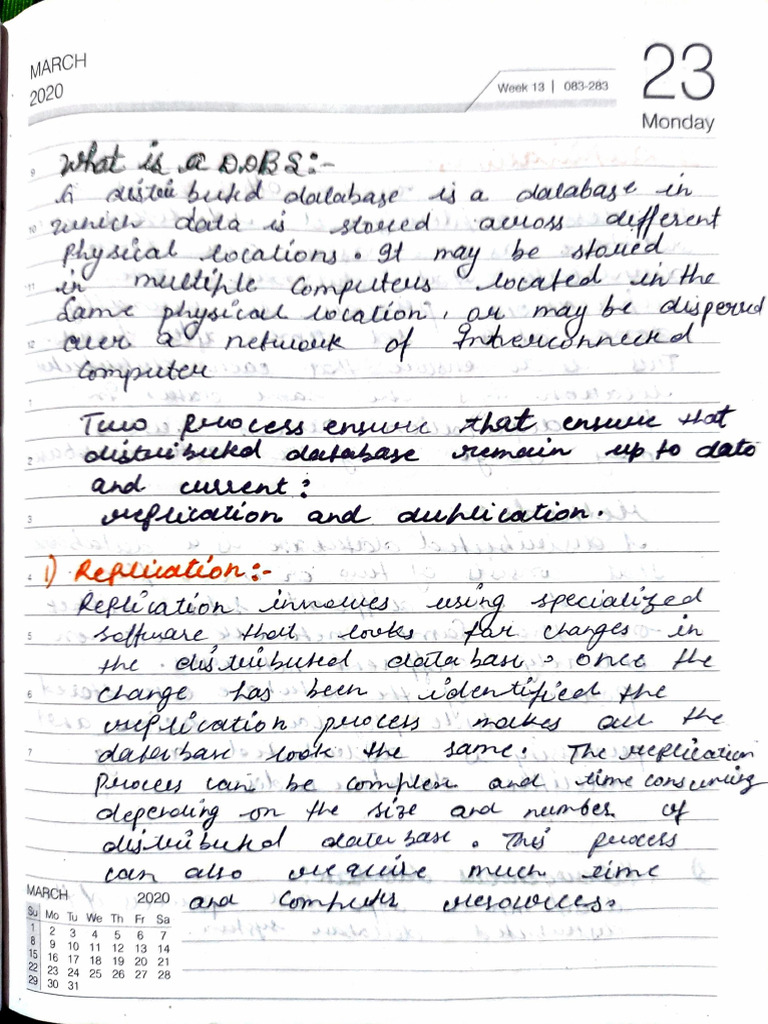 MARCH
2020
Week 13 | 083-283
23
Monday
9 What is a DDBS:-
A distributed database is a database in
10 which data is stored across different
physical locations. It may be stored
11 in multiple computers located in the
same physical location, or may be dispersed
12 over a network of Interconnected
Computer
1 Two process ensure that ensure that
2 distributed database remain up to date
and current:
3 replication and duplication.
4 1) Replication:-
Replication involves using specialized
5 software that looks for changes in
the distributed database. once the
6 change has been identified the
replication process makes all the
7 database look the same. The replication
process can be complex and time consuming
depending on the size and number of
distributed database. This process
can also require much time
and computer resources.
MARCH 2020
Su Mo Tu We Th Fr Sa
1 2 3 4 5 6 7
8 9 10 11 12 13 14
15 16 17 18 19 20 21
22 23 24 25 26 27 28
29 30 31